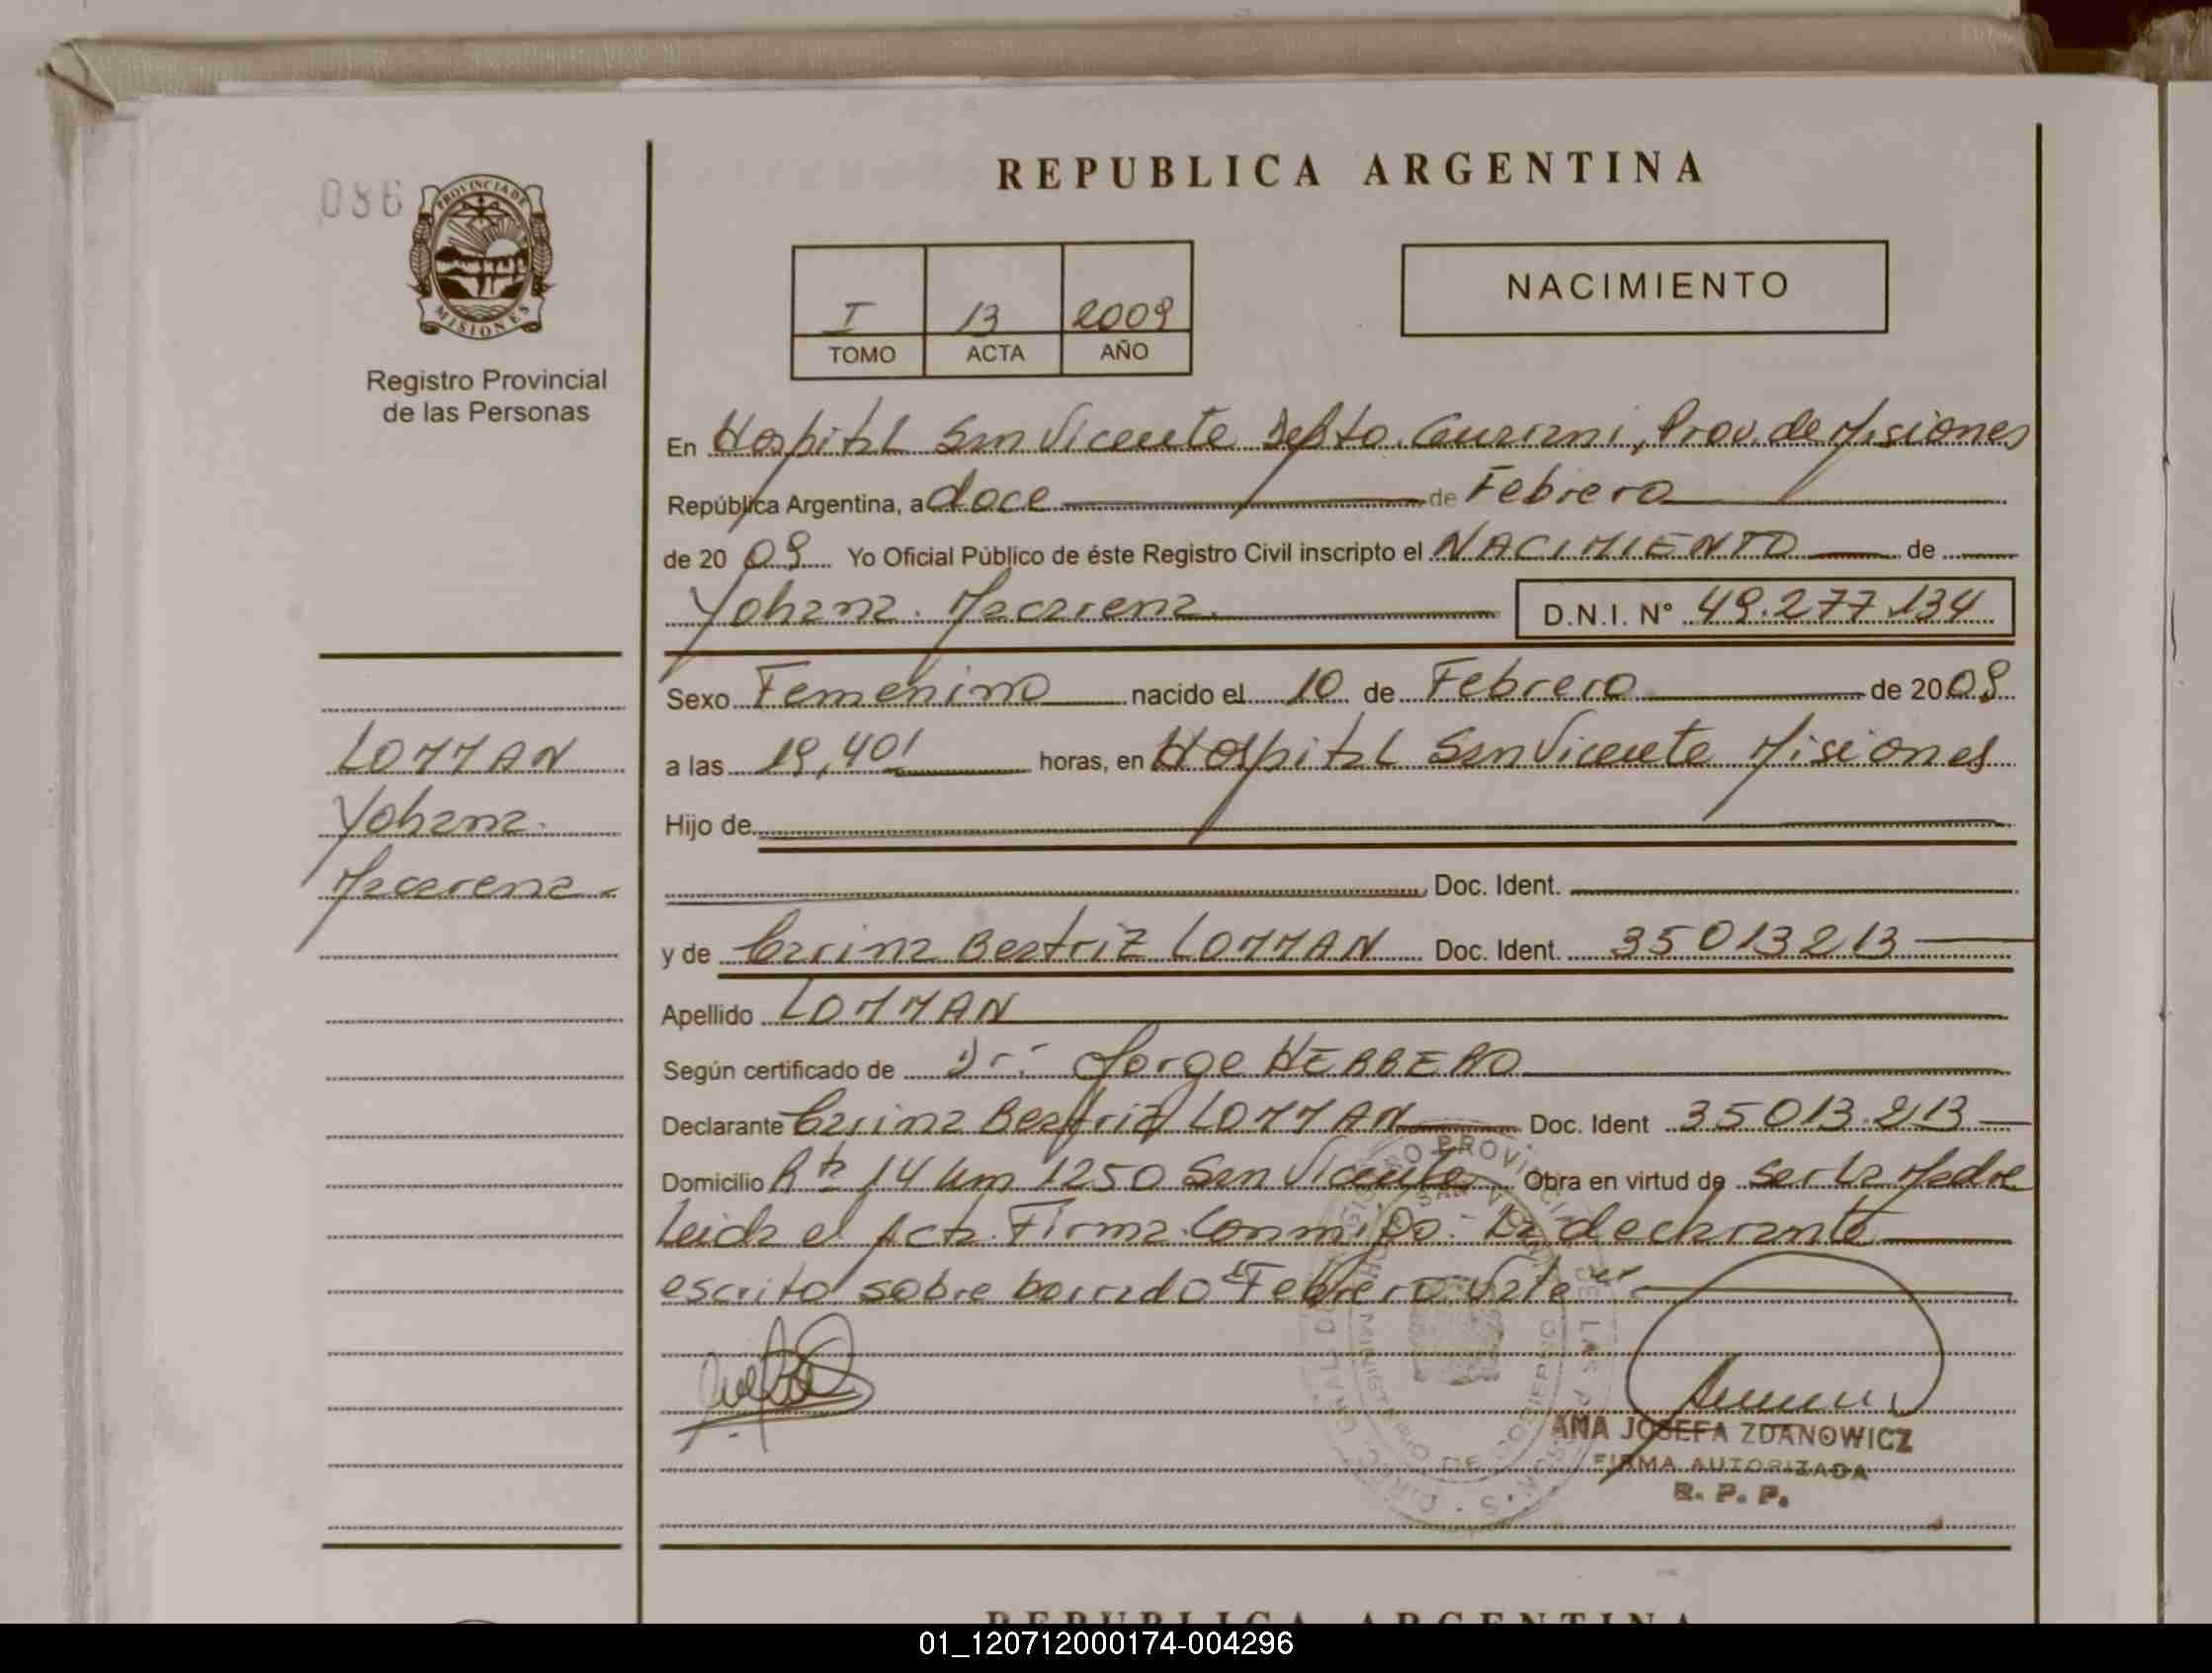 086
PROVINCIA DE
MISIONES
Registro Provincial
de las Personas
REPUBLICA ARGENTINA
I 13 2009
TOMO ACTA AÑO
NACIMIENTO
En Hospital San Vicente Depto. Guarani, Prov. de Misiones
República Argentina, a doce de Febrero
de 20 09 Yo Oficial Público de éste Registro Civil inscripto el NACIMIENTO de
Yohana Macarena D.N.I. N° 49.277.134
Sexo Femenino nacido el 10 de Febrero de 2009
a las 19,40' horas, en Hospital San Vicente Misiones
Hijo de
Doc. Ident.
y de Carina Beatriz LOMMAN Doc. Ident. 35013213
Apellido LOMMAN
Según certificado de Dr. Jorge HERRERO
Declarante Carina Beatriz LOMMAN Doc. Ident 35013.213
Domicilio Rta 14 km 1250 San Vicente Obra en virtud de ser la Madre
Leida el Acta Firma Conmigo - La declarante
escrito sobre borrado "Febrero Vale"
LOMMAN
Yohana
Macarena -
ANA JOSEFA ZDANOWICZ
FIRMA AUTORIZADA
R. P. P.
REPUBLICA ARGENTINA
01_120712000174-004296